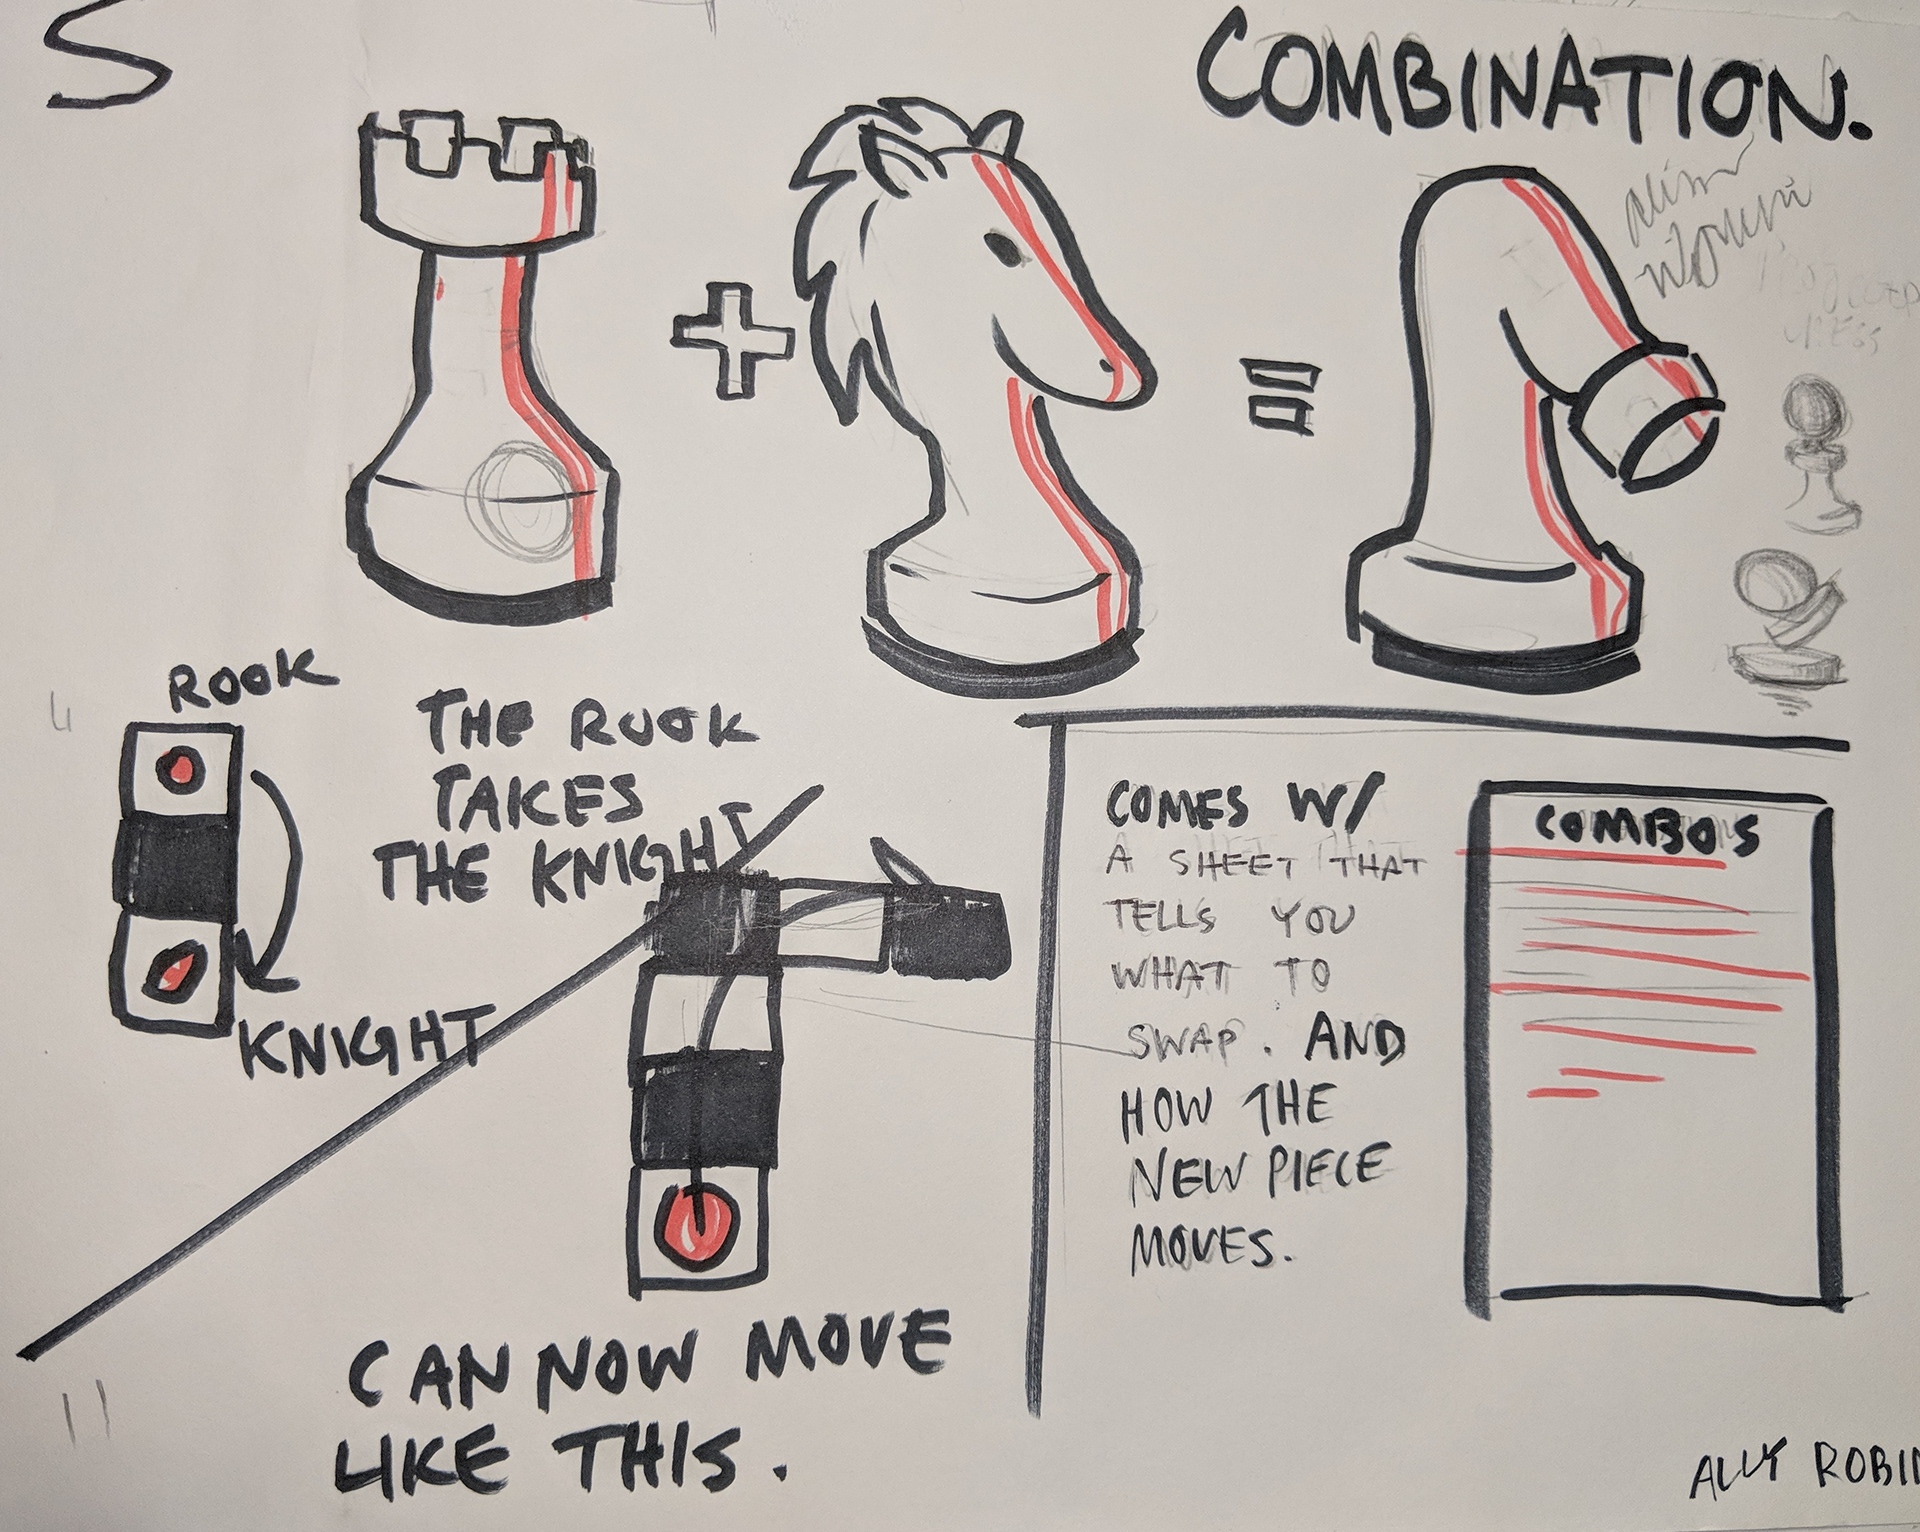 S
COMBINATION.
+
=
CHESS
ROOK
THE ROOK
TAKES
THE KNIGHT
KNIGHT
CAN NOW MOVE
LIKE THIS.
COMES W/
A SHEET THAT
TELLS YOU
WHAT TO
SWAP. AND
HOW THE
NEW PIECE
MOVES.
COMBOS
ALLY ROBIN